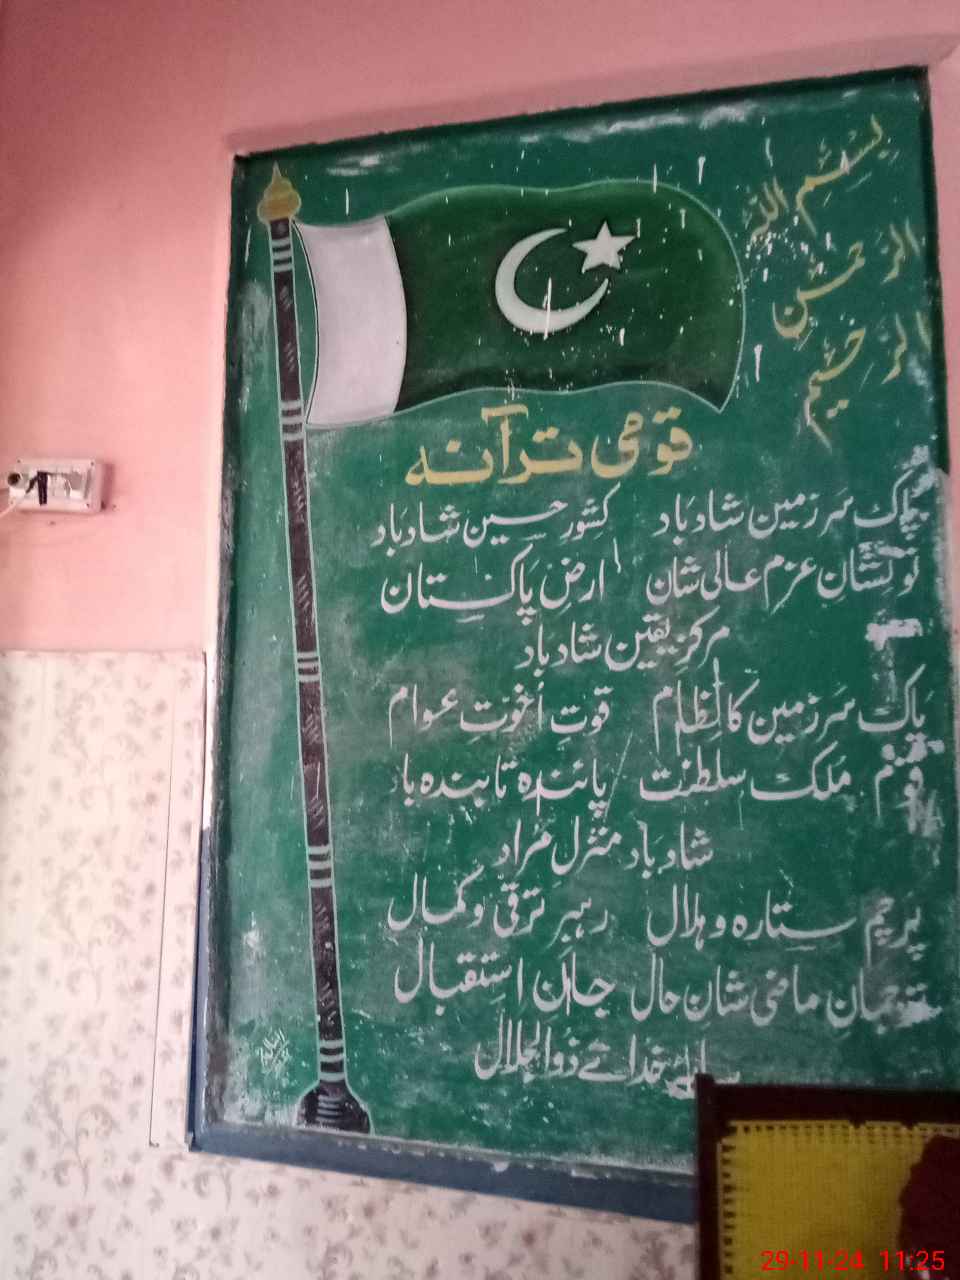 بِسْمِ اللهِ
الرَّحْمٰنِ
الرَّحِیْمِ
قومی ترآنہ
پاک سرزمین شادباد کشورِ حسین شادباد
تو نشانِ عزمِ عالی شان ارضِ پاکستان
مرکزِ یقین شادباد
پاک سرزمین کا نظام قوتِ اُخوتِ عوام
قوم ملک سلطنت پائندہ تابندہ باد
شادباد منزلِ مُراد
پرچم ستارہ و ہلال رہبرِ ترقی و کمال
ترجمانِ ماضی شانِ حال جانِ استقبال
خدائے ذوالجلال
29-11-24 11:25